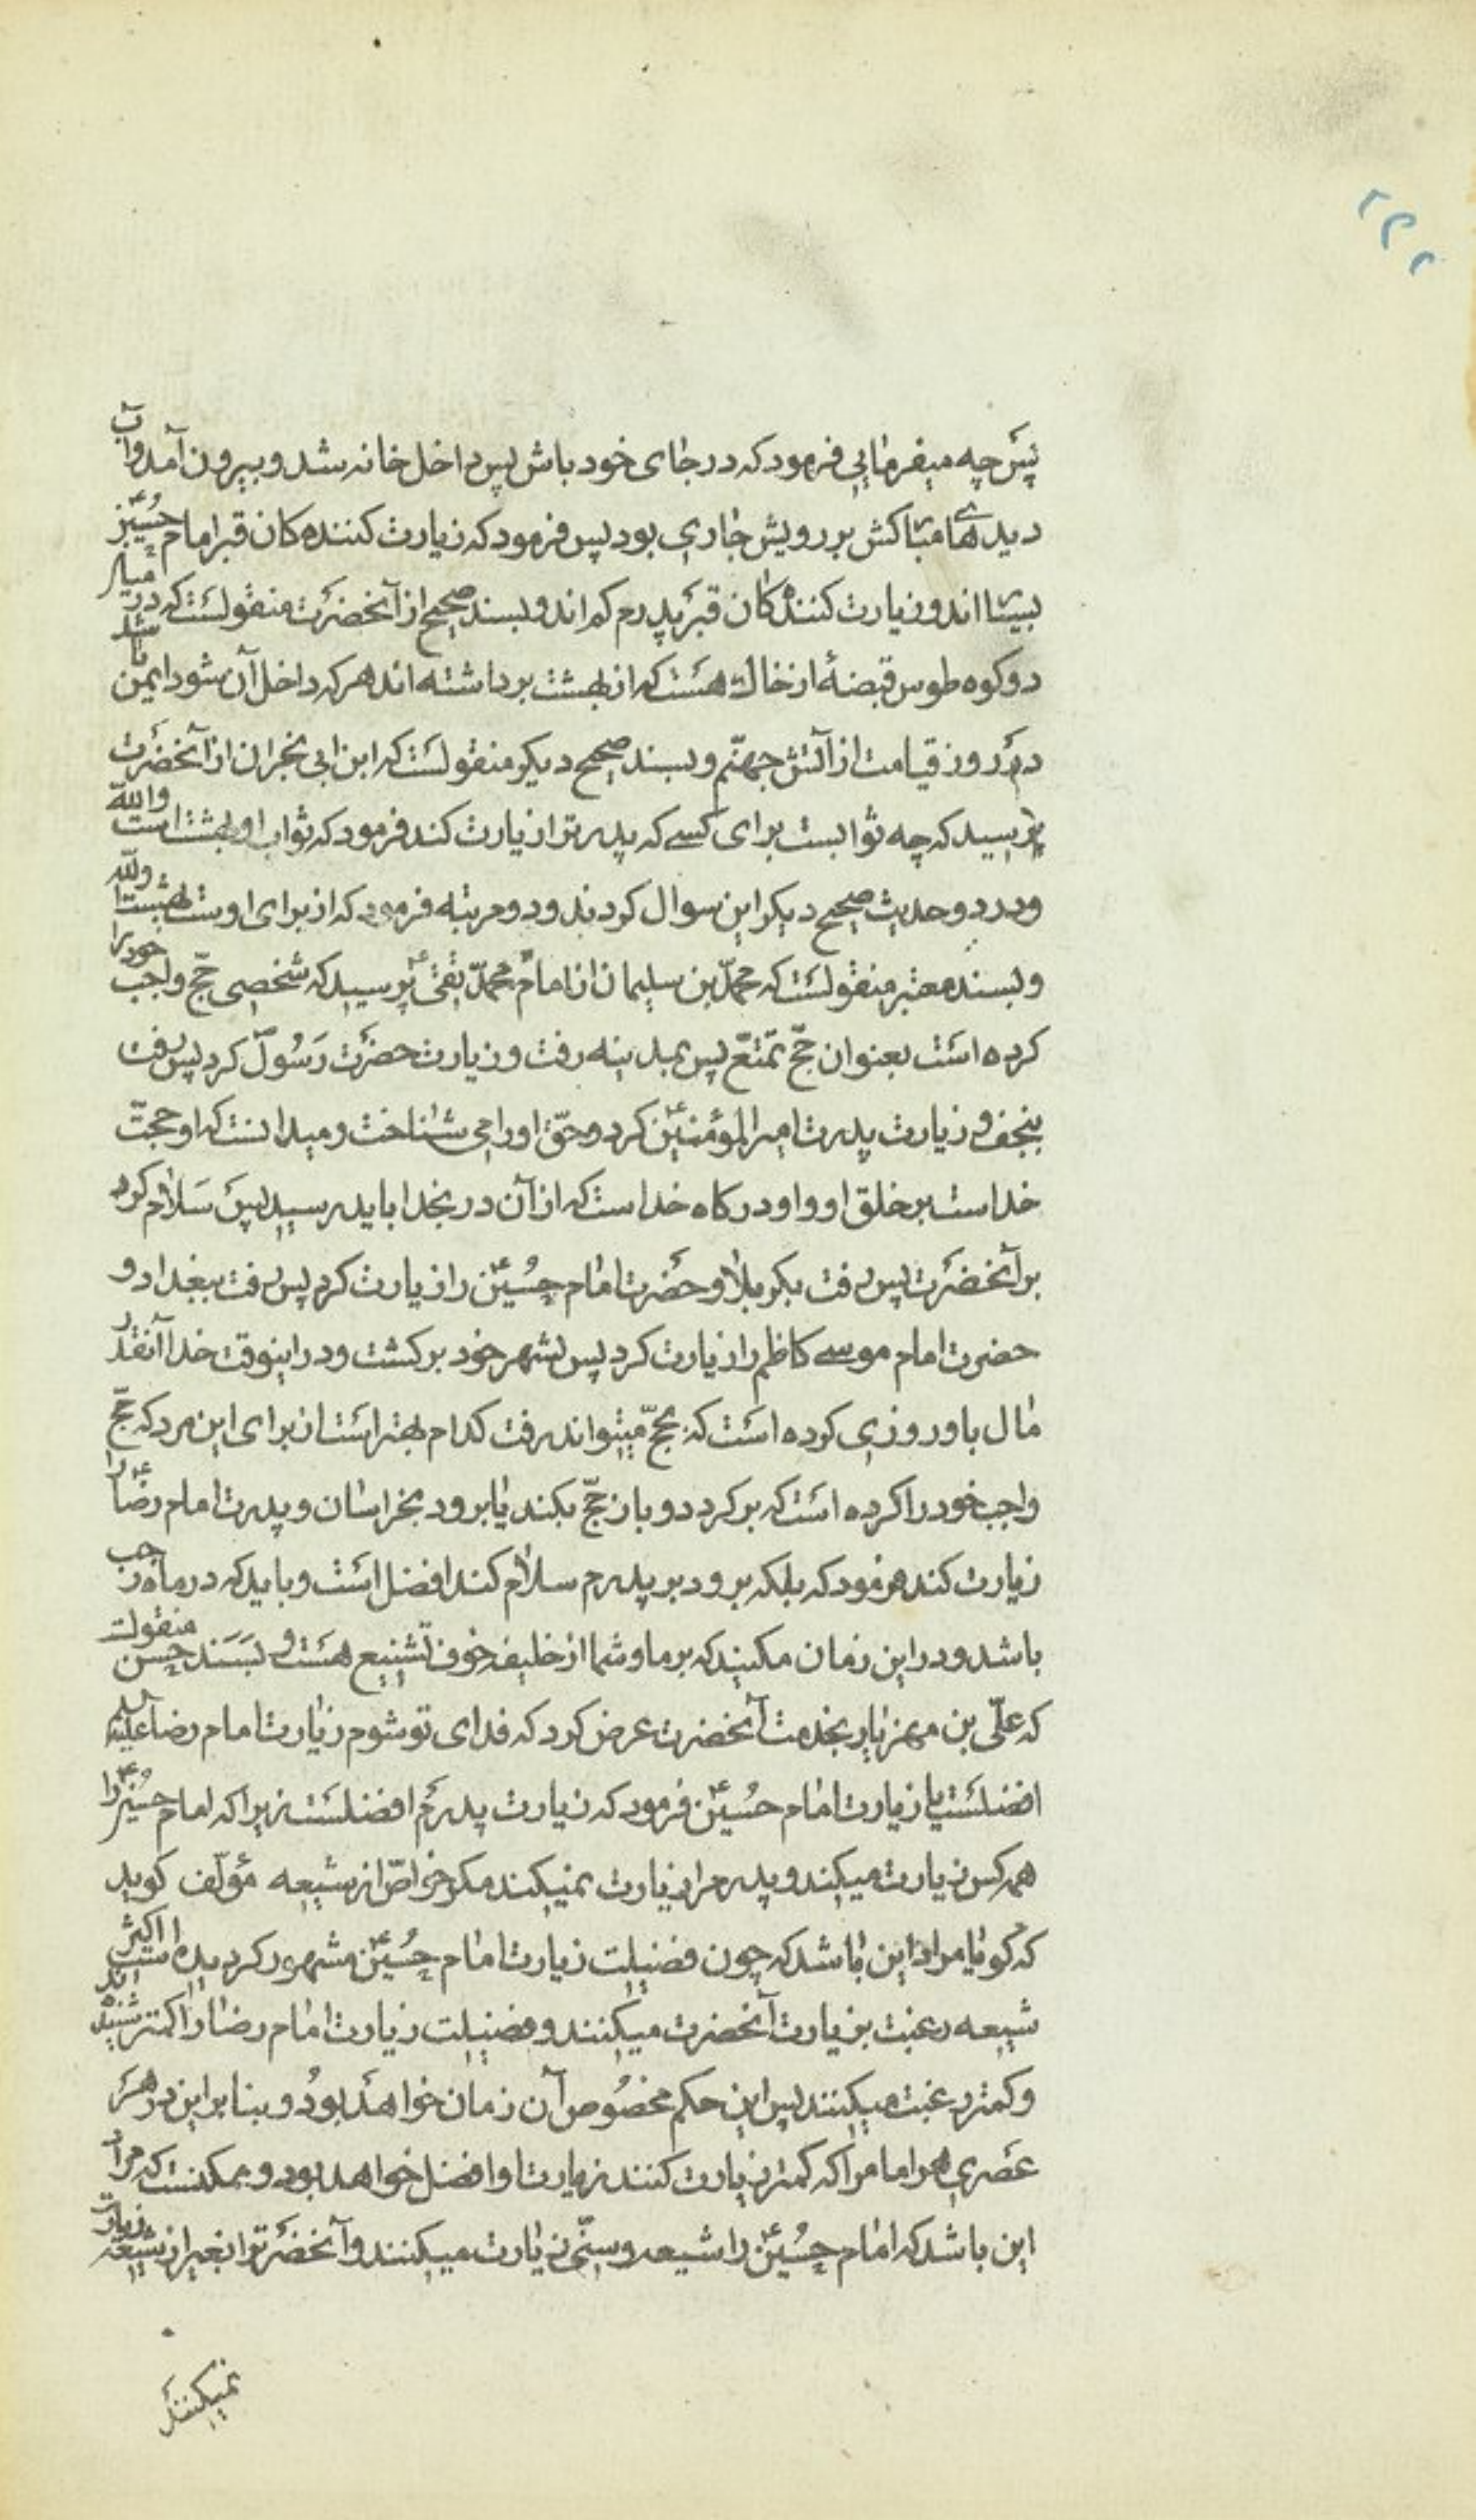 ۲۳۲
پس چه میفرمایی فرمود که در جای خود باش پس داخل خانه شد و بیرون آمد و آب
دیدهای مبارکش بر رویش جاری بود پس فرمود که زیارت کننده کان قبر امام حسین ع
بسیار اند و زیارت کننده کان قبر پدرم کم اند و بسند صحیح از آنحضرت منقولست که در میان
دو کوه طوس قبضهٔ از خاک هست که از بهشت برداشته اند هر که داخل آن شود ایمن باشد
در روز قیامت از آتش جهنّم و بسند صحیح دیکر منقولست که ابن ابی نجران از آنحضرت
پرسید که چه ثوابست برای کسے که پدرترا زیارت کند فرمود که ثواب او بهشت است واللّه
و در دو حدیث صحیح دیکر این سوال کردند و دو مرتبه فرمود که از برای اوست بهشت واللّه
و بسند معتبر منقولست که محمّد بن سلیمان از امام محمّد تقی ع پرسید که شخصی حجّ واجب خود را
کرده است بعنوان حجّ تمتعّ پس بمدینه رفت و زیارت حضرت رسول ص کرد پس رفت
بنجف و زیارت پدرت امیرالمؤمنین ع کرد و حقّ او را می شناخت و میدانست که او حجتّ
خداست بر خلق او و او درکاه خداست که از آن در بخدا باید رسید پس سلام کرد
بر آنحضرت پس رفت بکربلا و حضرت امام حسین ع را زیارت کرد پس رفت ببغداد و
حضرت امام موسے کاظم را زیارت کرد پس بشهر خود برکشت و در اینوقت خدا آنقدر
مال باو روزی کرده است که بحجّ میتواند رفت کدام بهتر است از برای این مرد که حجّ
واجب خود را کرده است که برکردد و باز حجّ بکند یا برود بخراسان و پدرت امام رضا ع را
زیارت کند فرمود که بلکه برود بر پدرم سلام کند افضل است و باید که در ماه رجب
باشد و در این زمان مکنید که بر ما و شما از خلیفه خوف تشنیع هست و بسند حسن منقولست
که علّی بن مهزیار بخدمت آنحضرت عرض کرد که فدای تو شوم زیارت امام رضا علیه
افضلست یا زیارت امام حسین ع فرمود که زیارت پدرم افضلست زیرا که امام حسین ع را
همه کس زیارت میکنند و پدر مرا زیارت نمیکنند مکر خواصّ از شیعه مؤلّف کوید
که کویا مراد این باشد که چون فضیلت زیارت امام حسین ع مشهور کردیده است اکثر
شیعه رغبت بزیارت آنحضرت میکنند و فضیلت زیارت امام رضا را کمتر شنیده اند
و کمتر رغبت میکنند پس این حکم مخصوص آن زمان خواهد بود و بنابراین در هر
عصری هر امام را که کمتر زیارت کنند زیارت او افضل خواهد بود و ممکنست که مراد
این باشد که امام حسین ع را شیعه و سنّی زیارت میکنند و آنحضرترا بغیر از شیعه زیارت
نمیکنند